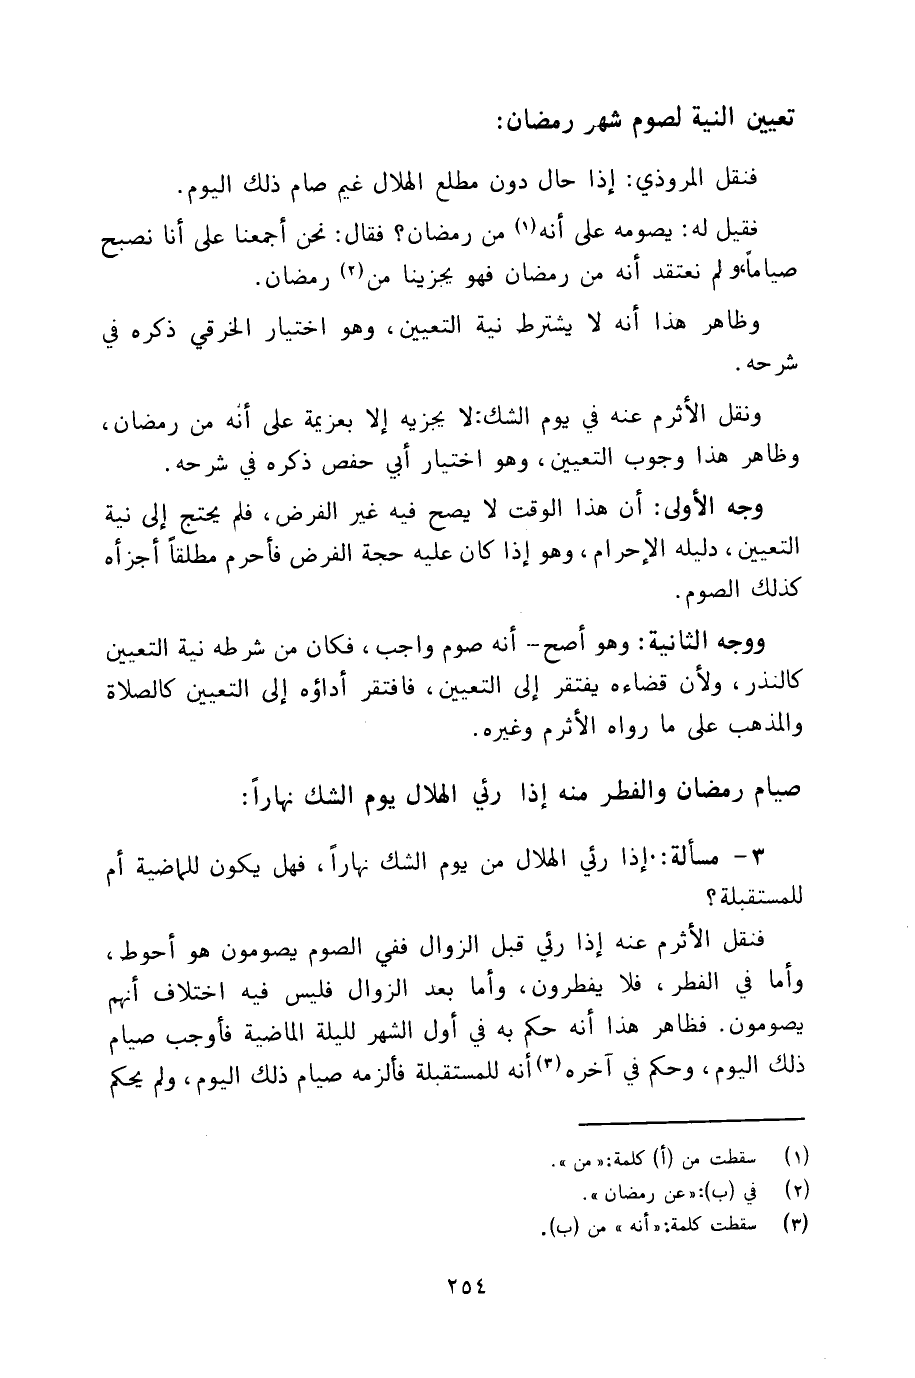 تعيين النية لصوم شهر رمضان:
فنقل المروذي: إذا حال دون مطلع الهلال غيم صام ذلك اليوم.
فقيل له: يصومه على أنه(١) من رمضان؟ فقال: نحن أجمعنا على أنا نصبح
صياماً، ولم نعتقد أنه من رمضان فهو يجزينا من(٢) رمضان.
وظاهر هذا أنه لا يشترط نية التعيين، وهو اختيار الخرقي ذكره في
شرحه.
ونقل الأثرم عنه في يوم الشك: لا يجزيه إلا بعزيمة على أنه من رمضان،
وظاهر هذا وجوب التعيين، وهو اختيار أبي حفص ذكره في شرحه.
وجه الأولى: أن هذا الوقت لا يصح فيه غير الفرض، فلم يحتج إلى نية
التعيين، دليله الإحرام، وهو إذا كان عليه حجة الفرض فأحرم مطلقاً أجزأه
كذلك الصوم.
ووجه الثانية: وهو أصح- أنه صوم واجب، فكان من شرطه نية التعيين
كالنذر، ولأن قضاءه يفتقر إلى التعيين، فافتقر أداؤه إلى التعيين كالصلاة
والمذهب على ما رواه الأثرم وغيره.
صيام رمضان والفطر منه إذا رئي الهلال يوم الشك نهاراً:
٣- مسألة: إذا رئي الهلال من يوم الشك نهاراً، فهل يكون للماضية أم
للمستقبلة؟
فنقل الأثرم عنه إذا رئي قبل الزوال ففي الصوم يصومون هو أحوط،
وأما في الفطر، فلا يفطرون، وأما بعد الزوال فليس فيه اختلاف أنهم
يصومون. فظاهر هذا أنه حكم به في أول الشهر لليلة الماضية فأوجب صيام
ذلك اليوم، وحكم في آخره(٣) أنه للمستقبلة فألزمه صيام ذلك اليوم، ولم يحكم
(١) سقطت من (أ) كلمة: «من».
(٢) في (ب): «عن رمضان».
(٣) سقطت كلمة: «أنه» من (ب).
٢٥٤